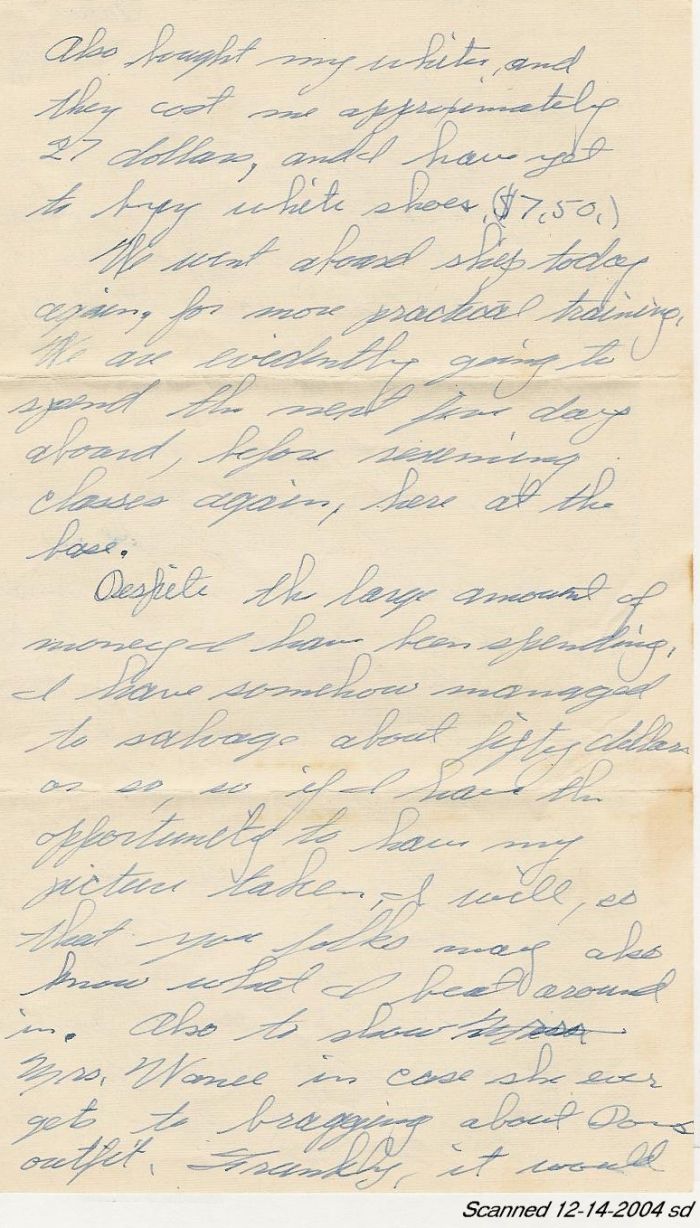 Also bought my whites, and
they cost me approximately
27 dollars, and I have yet
to buy white shoes. ($7.50.)
We went aboard ship today
again, for more practical training.
We are evidently going to
spend the next five days
aboard, before resuming
classes again, here at the
base.
Despite the large amount of
money I have been spending,
I have somehow managed
to salvage about fifty dollars
or so, so if I have the
opportunity to have my
picture taken, I will, so
that you folks may also
know what I beat around
in. Also to show
Mrs. Wanee in case she ever
gets to bragging about Dons
outfit. Frankly, it would
Scanned 12-14-2004 sd